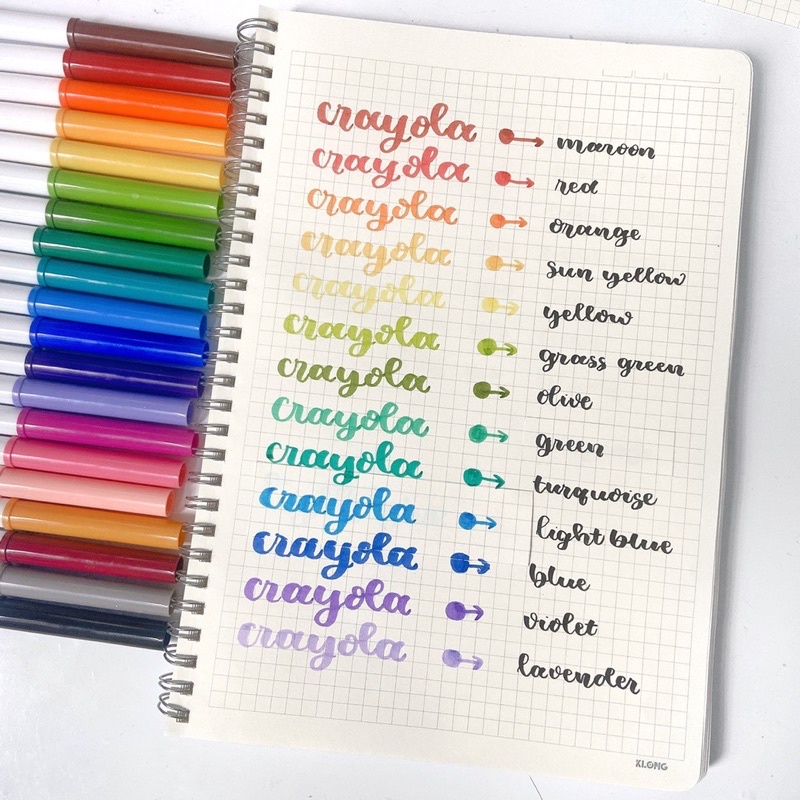 crayola → maroon
crayola → red
crayola → orange
crayola → sun yellow
crayola → yellow
crayola → grass green
crayola → olive
crayola → green
crayola → turquoise
crayola → light blue
crayola → blue
crayola → violet
crayola → lavender
KLONG